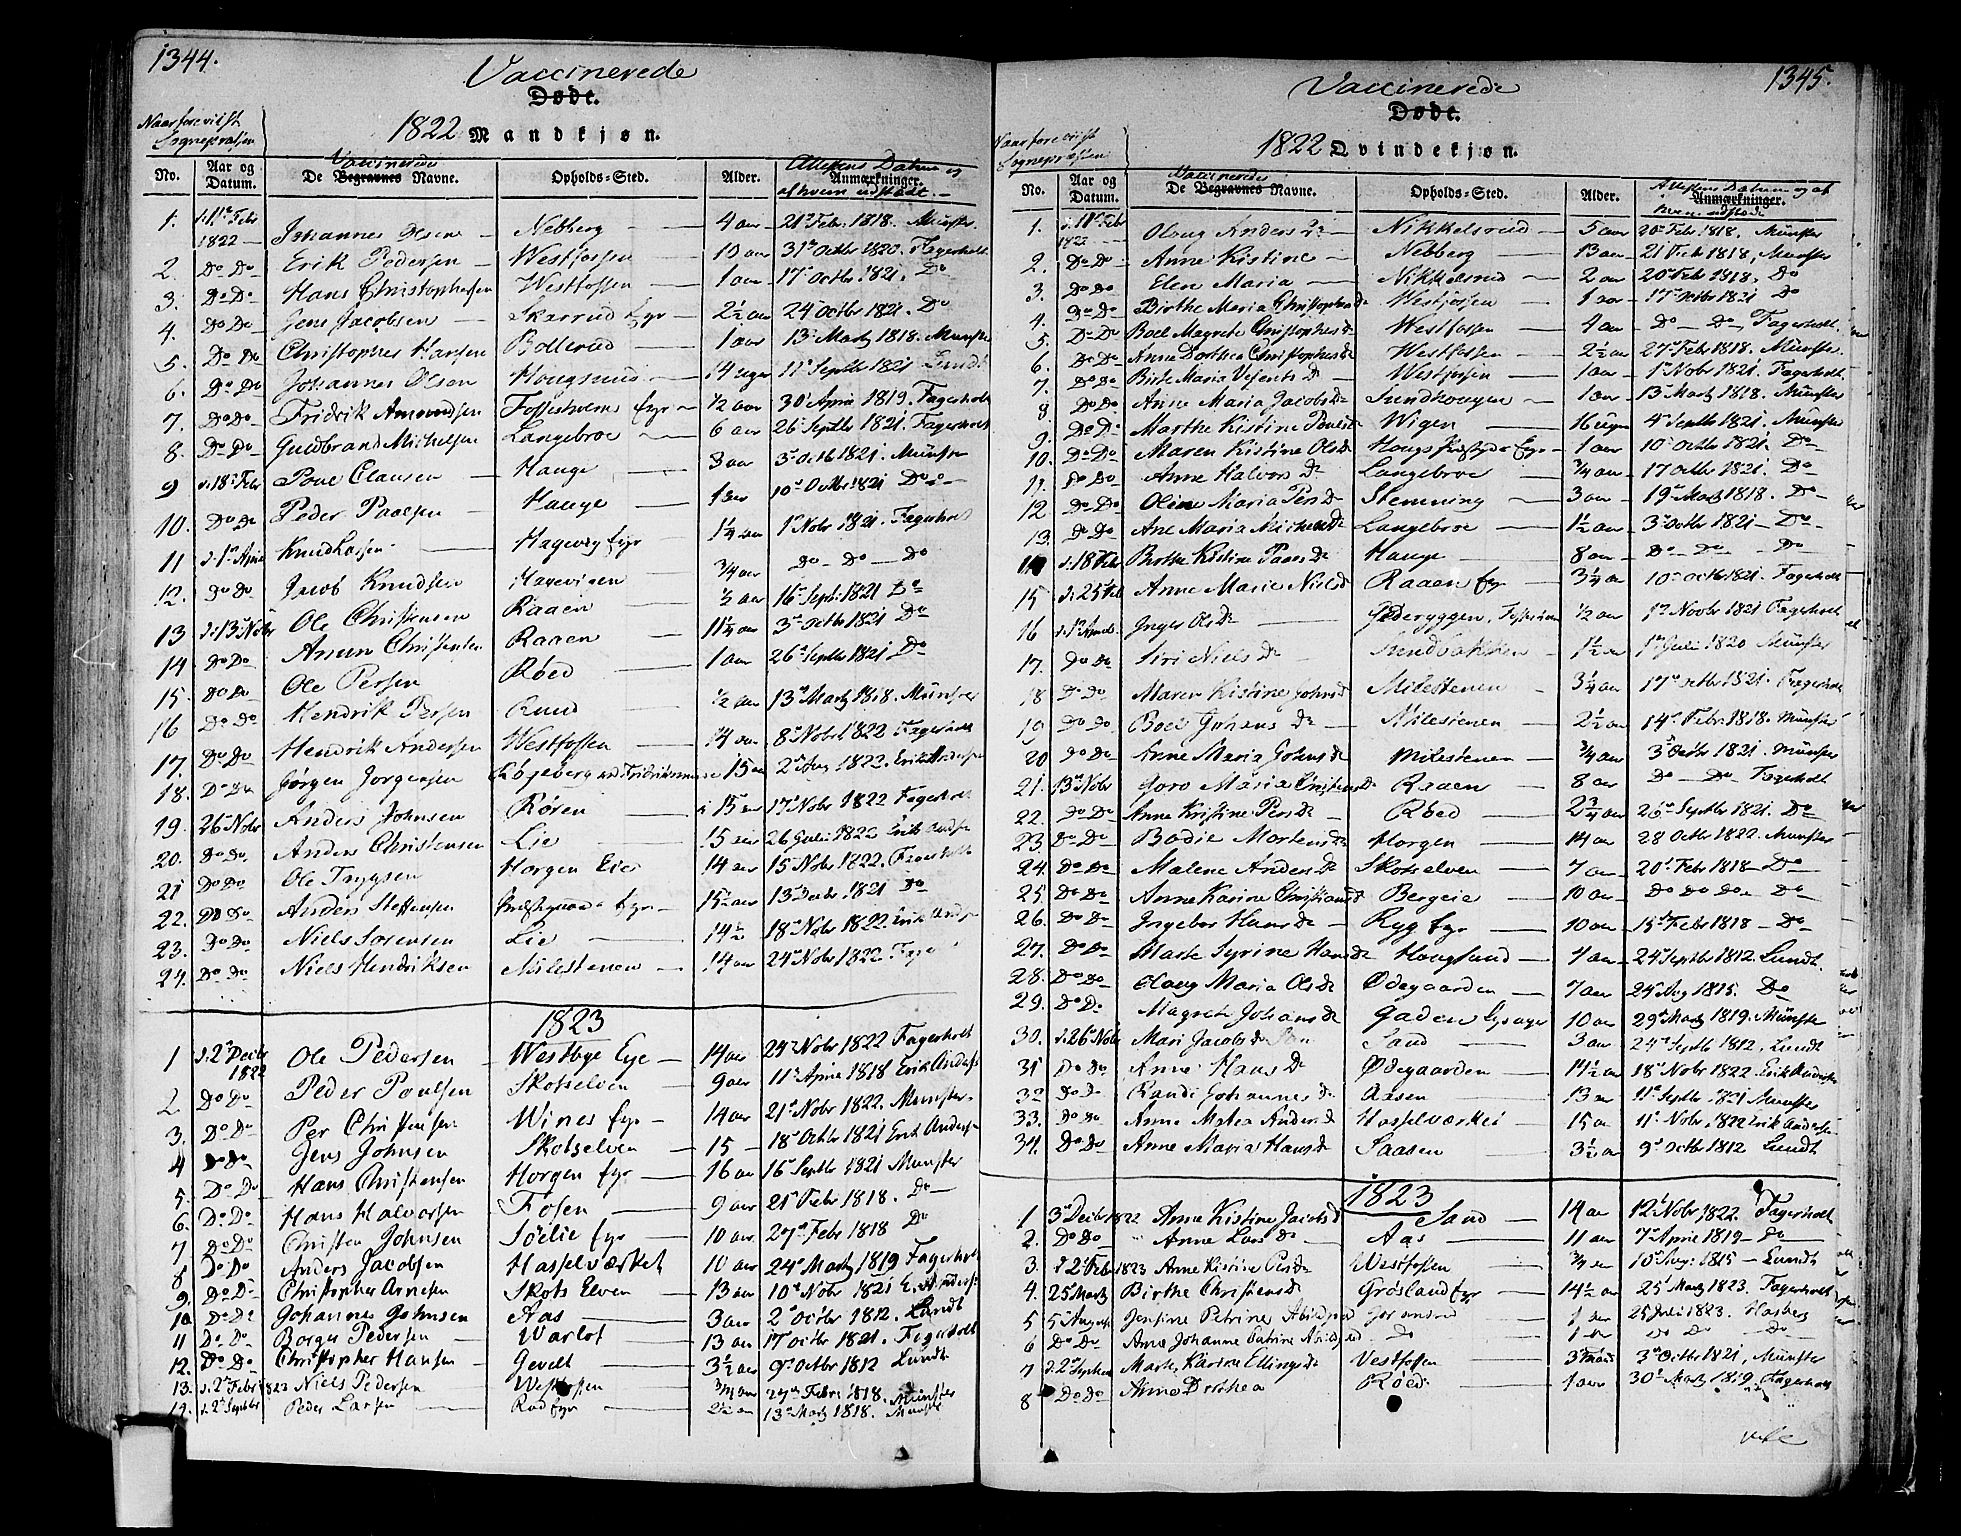 1344.
Vaccinerede
Døde.
Naar forevist Sognepræsten
1822 Mandkjøn.
No. Aar og Datum. De Vaccinerede Begravnes Navne. Opholds-Sted. Alder. Attestens Datum og Anmærkninger. af hvem udstædt.
1. d. 11te Febr 1822 Johannes Olsen Nebberg 4 aar 21de Febr. 1818. Münster
2. Do Do Erik Pedersen Westfossen 10 aar 31te Octbr 1820. Fagerholt
3. Do Do Hans Christophersen Westfossen 1 aar 17de Octbr 1821. Do
4. Do Do Jens Jacobsen Skarrud Eyr 2½ aar 24 Octbr 1821. Do
5. Do Do Christopher Hansen Bollerud 1 aar 13de Martz 1818. Munster
6. Do Do Johannes Olsen Hougsrud 14 uger 11te Septbr 1821 Lundt
7. Do Do Fridrik Amundsen Fossesholms Eyr ½ aar 30te April 1819. Fagerholt
8. Do Do Guldbrand Michelsen Langebroe 6 aar 26 Septbr 1821. Fagerholt
9 d. 18de Febr Poul Clausen Hauge 3 aar 3de Octb 1821. Münster
10. Do Do Peder Paulsen Hauge 1 aar 10de Octbr 1821 Do
11 d. 1te April Knud Larsen Hagevig Eyr 1¼ aar 1te Nobr 1821. Fagerholt
12. Do Do Jacob Knudsen Hagevigen ¾ aar Do Do Do
13 d. 13de Nobr Ole Christensen Raaen ½ aar 16de Septbr 1821 Do
14 Do Do Amun Christensen Raaen 11¼ aar 3de Octbr 1821 Do
15. Do Do Ole Persen Røed 1 aar 26de Septbr 1821 Do
16 Do Do Hendrik Persen Ruud ½ aar 13de Martz 1818. Münster
17. Do Do Hendrik Andersen Westfossen 14 aar 8de Nobr 1822 Fagerholt
18. Do Do Jørgen Jorgensen 15 aar 2de Aug 1822. Erik Andersen
19. 26de Nobr Anders Johnsen Røren 15 aar 17de Nobr 1822 Fagerholt
20. Do Do Anders Christensen Lie 15 aar 26 Julii 1822 Erik Anders
21 Do Do Ole Trygsen Horgen Eie 14 aar 15 Nobr 1822. Fagerholt
22. Do Do Anders Steffensen 15½ aar 13 Decbr 1821 Do
23. Do Do Niels Sorensen Lie 14½ 18de Nobr 1822. Erik Anders
24. Do Do Niels Hendriksen Milestenen 14 aar 24de Nobr 1822
1823
1 d. 2de Decbr 1822 Ole Pedersen Westbye Eye 14 aar 24de Nobr 1822 Fagerholt
2 Do Do Peder Poulsen Skotselven 9 aar 11te April 1818 Erik Anders
3. Do Do Per Christensen Wines Eyr 14 aar 21de Nobr 1822. Munster
4 Do Do Jens Johnsen Skotselven 15 18de Octbr 1821 Erik Anders
5. Do Do Hans Christensen Horgen Eyr 16 aar 16de Septbr 1821 Munster
6. Do Do Hans Halvorsen Fosen 9 aar 21de Febr 1818. Do
7 Do Do Christen Johnsen Sølie Eyr 10 aar 27de Febr 1818 Do
8 Do Do Anders Jacobsen Hasselværket 10 aar 24de Martz 1819 Fagerholt
9. Do Do Christopher Arnesen Skots Elven 13 aar 10de Nobr 1821 Erik Anders
10 Do Do Johannes Johnsen Aas 3 aar 2de Octbr 1812. Lundt
11 Do Do Borger Pedersen Warlof 13 aar 17 Octbr 1821. Fagerholt
12. Do Do Christopher Hansen Gevelt 3½ aar 9de Octbr 1812 Lundt
13. d. 2de Febr 1823 Niels Pedersen Westfossen ¾ aar 27de Febr 1818. Münster
14. d. 2de Septbr Peder Larsen Rud Eyr 2½ aar 13de Martz 1818. Munster
1345.
Vaccinerede
Døde.
Naar forevist Sognepræsten
1822 Qvindekjøn.
No. Aar og Datum. De Vaccinerede Begravnes Navne. Opholds-Sted. Alder. Attestens Datum og af Anmærkninger. hvem udstædt
1. d. 11te Febr 1822 Olaug Andersd Nikkelsrud 5 aar 20de Febr 1818. Münster
2. Do Do Anne Kistine Nebberg 13 aar 21 Febr 1818, Munster
3. Do Do Elen Maria Nikkelsrud 2 aar 20de Febr 1818. Do
4. Do Do Birthe Maria Christophersd Westfossen 1 aar 17de Octbr 1821 Do
5. Do Do Boel Magrete Christophersd Westfossen 4 aar Do Do Fagerholt
6. Do Do Anne Dorthea Christophersd Westfossen 2½ aar 27de Febr 1818. Münster
7. Do Do Birte Maria Vesentsd Westfossen 1 aar 1te Nobr 1821. Fagerholt
8 Do Do Anne Maria Jacobsd Sundhougen 1 aar 13de Martz 1818. Münster
9. Do Do Marthe Kistine Poulsd Wigen 16 ugr 4de Septbr 1821. Münster
10. Do Do Maren Kistine Olsd 1 aar 10de Octbr 1821. Do
11. Do Do Anne Halvorsd Langebroe ¾ aar 17 Octbr 1821. Do
12 Do Do Oline Maria Persd Stemning 3 aar 19de Martz 1818. Do
13. Do Do Ane Maria Michelsd Langebroe 1½ aar 3de Octbr 1821 Do
14 d. 18 Febr Birthe Kistine Paasd Hauge 8 aar Do Do Do
15 d. 25 Feb Anne Marie Nielsd Raaen Eyr 3¼ aar 10de Octb 1821. Fagerholt
16 d. 1te April Inger Olsd Øderyggen ½ aar 1te Novbr 1821 Fagerholt
17. Do Do Siri Nielsd Sundbakken 1½ aar 1te Julii 1820 Münster
18 Do Do Maren Kistine Johnsd Milestenen 3¼ aar 17de Octbr 1821. Fagerholt
19 Do Do Boel Johansd Milestenen 2½ aar 14de Febr. 1818. Münster
20 Do Do Anne Maria Johnsd Milestenen ¾ aar 3de Octbr 1821. Münster
21. 13de Nobr Goro Maria Christensd Raaen 8 aar Do Do Fagerholt
22. Do Do Anne Kristine Persd Røed 2¾ aar 26de Septbr 1821. Do
23. Do Do Bodie Mortensd Horgen 14 aar 28 Octbr 1822. Munster
24. Do Do Malene Andersd Skotselven 7 aar 20de Febr 1818 Do
25. Do Do Anne Karine Christiansd Bergeie 10 aar Do Do Do Do
26. Do Do Ingebor Hansd Ryg Eyr 10 aar 15de Febr 1818 Do
27. Do Do Marte Syrine Hansd Hougsund 4 aar 24de Septbr 1812. Lundt
28. Do Do Olaug Maria Olsd Ødegaarden 7 aar 24de Aug 1815. Do
29. Do Do Magrete Johansd Gaden Lysager 10 aar 29de Martz 1819. Münster
30. d. 26de Nobr Mari Jacobsd Sand 3 aar 24de Septbr 1812. Lundt
31 Do Do Anne Hansd Ødegaarden 14½ aar 18de Nobr 1822. Erik Anders
32 Do Do Randi Johannesd Aasen 13 aar 11te Septbr 1821 Munster
33. Do Do Anne Mathea Andersd Hasselværket 15 aar 11te Nobr. 1822 Erik Anders
34. Do Do Anne Maria Hansd Saasen 3½ aar 9de Octbr 1812 Lundt
1823
1 3de Decbr 1822 Anne Kistine Jacobsd Sand 14 aar 12te Nobr 1822. Fagerholt
2. Do Do Anne Larsd Aas 11 aar 7de April 1819 Do
3. d 2de Febr 1823 Anne Kistine Persd Westfossen ¾ aar 10de Aug 1815 Lundt
4. 25 Martz Birthe Christensd Grøsland Eyr 14½ aar 25de Martz 1823. Fagerholt
5 5te August Jensine Petrine 1 aar 25 Juli 1823. Hasberg
6 Do Do Anne Johanne Catrine Do 1 aar Do Do Do
7 d. 2de Septbr Marte Karine Ellingsd Vestfossen 3 3de Octbr 1821, Münster
8 Do Do Anne Dorthea Røed 1 aar 30te Martz 1819. Fagerholt